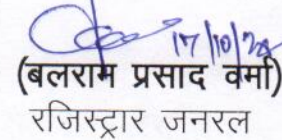 17/10/20
(बलराम प्रसाद वर्मा)
रजिस्ट्रार जनरल